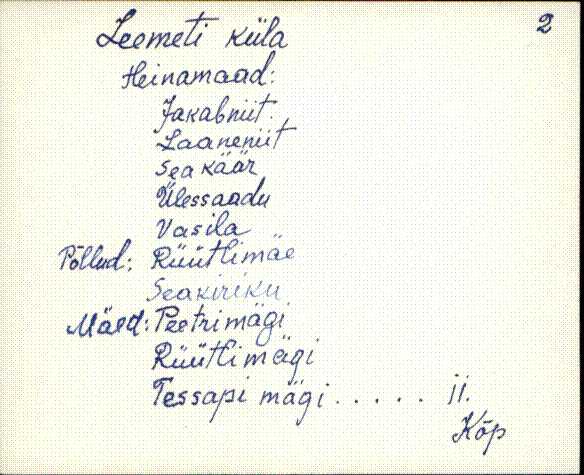 2
Leemeti küla
Heinamaad:
Jakabniit.
Laaneniit
Seakäär
Ülessaadu
Vasila
Põllud: Rüütlimäe
Seakiriku
Mäed: Peetrimägi
Rüütlimägi
Tessapi mägi ..... ii.
Kõp